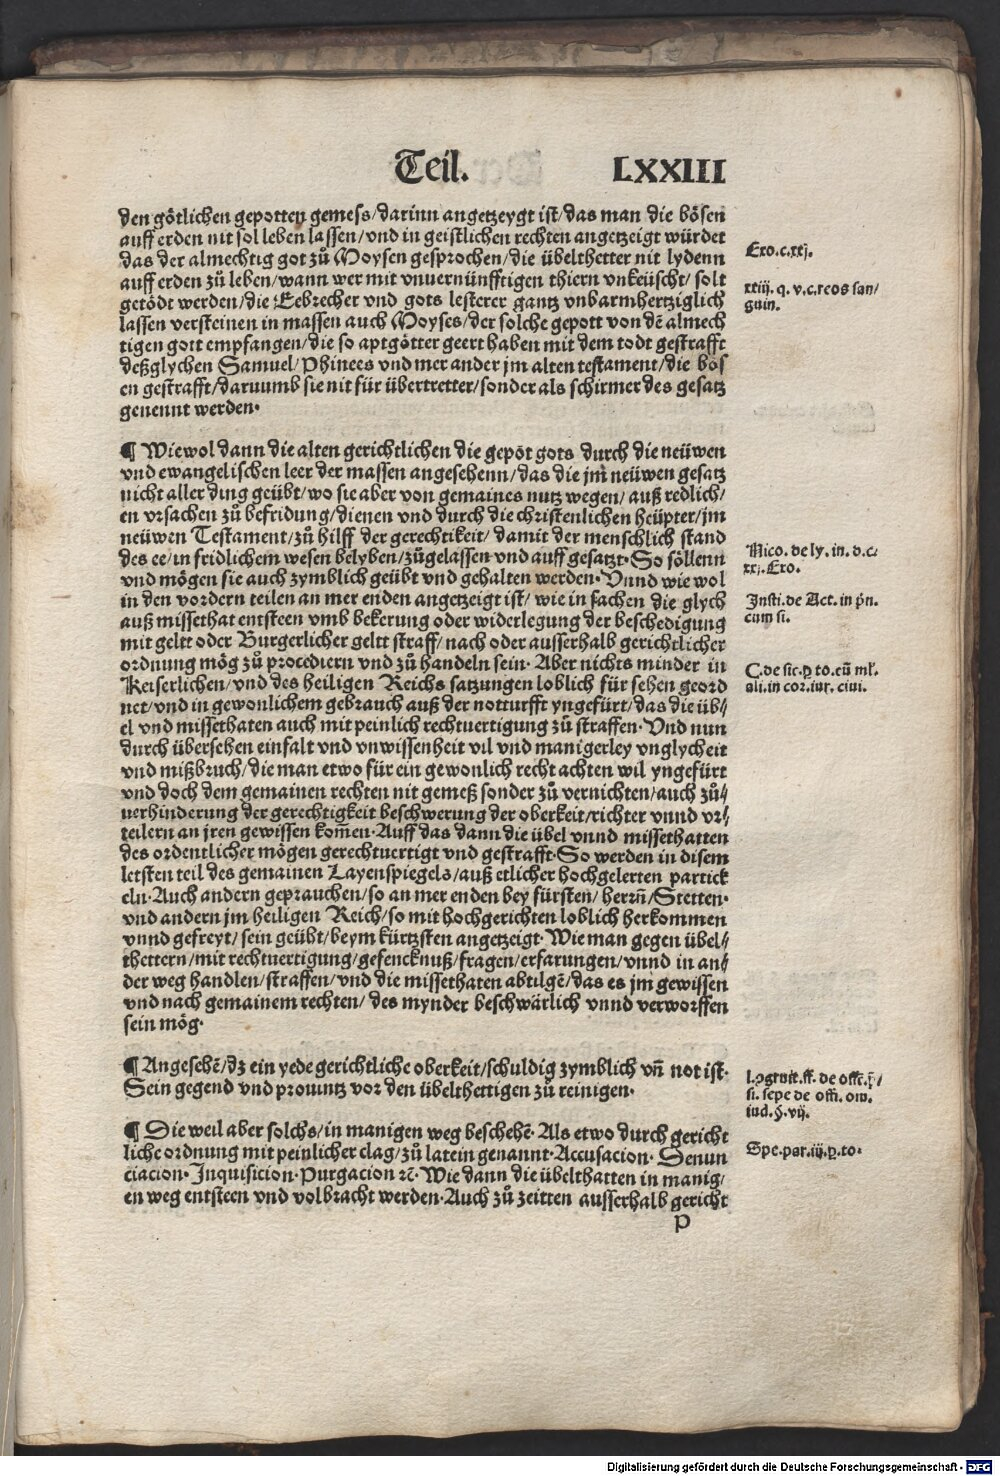 Teil. LXXIII
den götlichen gepotten gemess/darinn angetzeygt ist/das man die bösen
auff erden nit sol leben lassen/vnd in geistlichen rechten angetzeigt würdet
das der almechtig got zů Moysen gesprochen/die übelthetter nit lydenn
auff erden zů leben/wann wer mit vnuernünfftigen thiern vnkeüscht/solt
getödt werden/die Eebrecher vnd gots lesterer gantz vnbarmhertziglich
lassen versteinen in massen auch Moyses/der solche gepott von dē almech
tigen gott empfangen/die so aptgötter geert haben mit dem todt gestrafft
deßglychen Samuel/Phinees vnd mer ander jm alten testament/die bös
en gestrafft/daruumb sie nit für übertretter/sonder als schirmer des gesatz
genennt werden.
Exo.c.xxj.
xxiij. q. v.c.reos san/
guin.
¶ Wiewol dann die alten gerichtlichen die gepöt gots durch die neüwen
vnd ewangelischen leer der massen angesehenn/das die jm neüwen gesatz
nicht aller ding geübt/wo sie aber von gemaines nutz wegen/auß redlich/
en vrsachen zů befridung/dienen vnd durch die christenlichen heüpter/jm
neüwen Testament/zů hilff der gerechtikeit/damit der menschlich stand
des ee/in fridlichem wesen belyben/zůgelassen vnd auff gesatzt. So söllenn
vnd mögen sie auch zymblich geübt vnd gehalten werden. Vnnd wie wol
in den vordern teilen an mer enden angetzeigt ist/wie in sachen die glych
auß missethat entsteen vmb bekerung oder widerlegung der beschedigung
mit geltt oder Burgerlicher geltt straff/nach oder ausserhalb gerichtlicher
ordnung mög zů procediern vnd zů handeln sein. Aber nichts minder in
Keiserlichen/vnd des heiligen Reichs satzungen loblich für sehen geord
net/vnd in gewonlichem gebrauch auß der notturfft yngefürt/das die üb//
el vnd missethaten auch mit peinlich rechtuertigung zů straffen. Vnd nun
durch übersehen einfalt vnd vnwissenheit vil vnd manigerley vnglycheit
vnd mißbruch/die man etwo für ein gewonlich recht achten wil yngefürt
vnd doch dem gemainen rechten nit gemeß sonder zů vernichten/auch zů//
uerhinderung der gerechtigkeit beschwerung der oberkeit/richter vnnd vr//
teilern an jren gewissen kom̄en. Auff das dann die übel vnnd missethatten
des ordentlicher mögen gerechtuertigt vnd gestrafft. So werden in disem
letsten teil des gemainen Layenspiegels/auß etlicher hochgelerten partick
eln. Auch andern geprauchen/so an mer enden bey fürsten/herrn̄/Stetten.
vnd andern jm heiligen Reich/so mit hochgerichten loblich herkommen
vnnd gefreyt/sein geübt/beym kürtzsten angetzeigt. Wie man gegen übel//
thettern/mit rechtuertigung/gefencknuß/fragen/erfarungen/vnnd in an//
der weg handlen/straffen/vnd die missethaten abtilgē/das es jm gewissen
vnd nach gemainem rechten/des mynder beschwärlich vnnd verworffen
sein mög.
Nico. de ly. in. d.c/
xxj. Exo.
Insti. de Act. in p̄n.
cum si.
C. de sic. ꝑ to. cū ml̓.
ali. in cor. iur. ciui.
¶ Angesehē/dz ein yede gerichtliche oberkeit/schuldig zymblich vn̄ not ist.
Sein gegend vnd prouintz vor den übelthettigen zů reinigen.
¶ Die weil aber solchs/in manigen weg beschehē. Als etwo durch gericht
liche ordnung mit peinlicher clag/zů latein genannt. Accusacion. Denun
ciacion. Inquisicion. Purgacion ꝛc̄. Wie dann die übelthatten in manig/
en weg entsteen vnd volbracht werden. Auch zů zeitten ausserhalb gericht
si. sepe de offi. om.
Spe. par. iij. ꝑ. to.
p
Digitalisierung gefördert durch die Deutsche Forschungsgemeinschaft - DFG